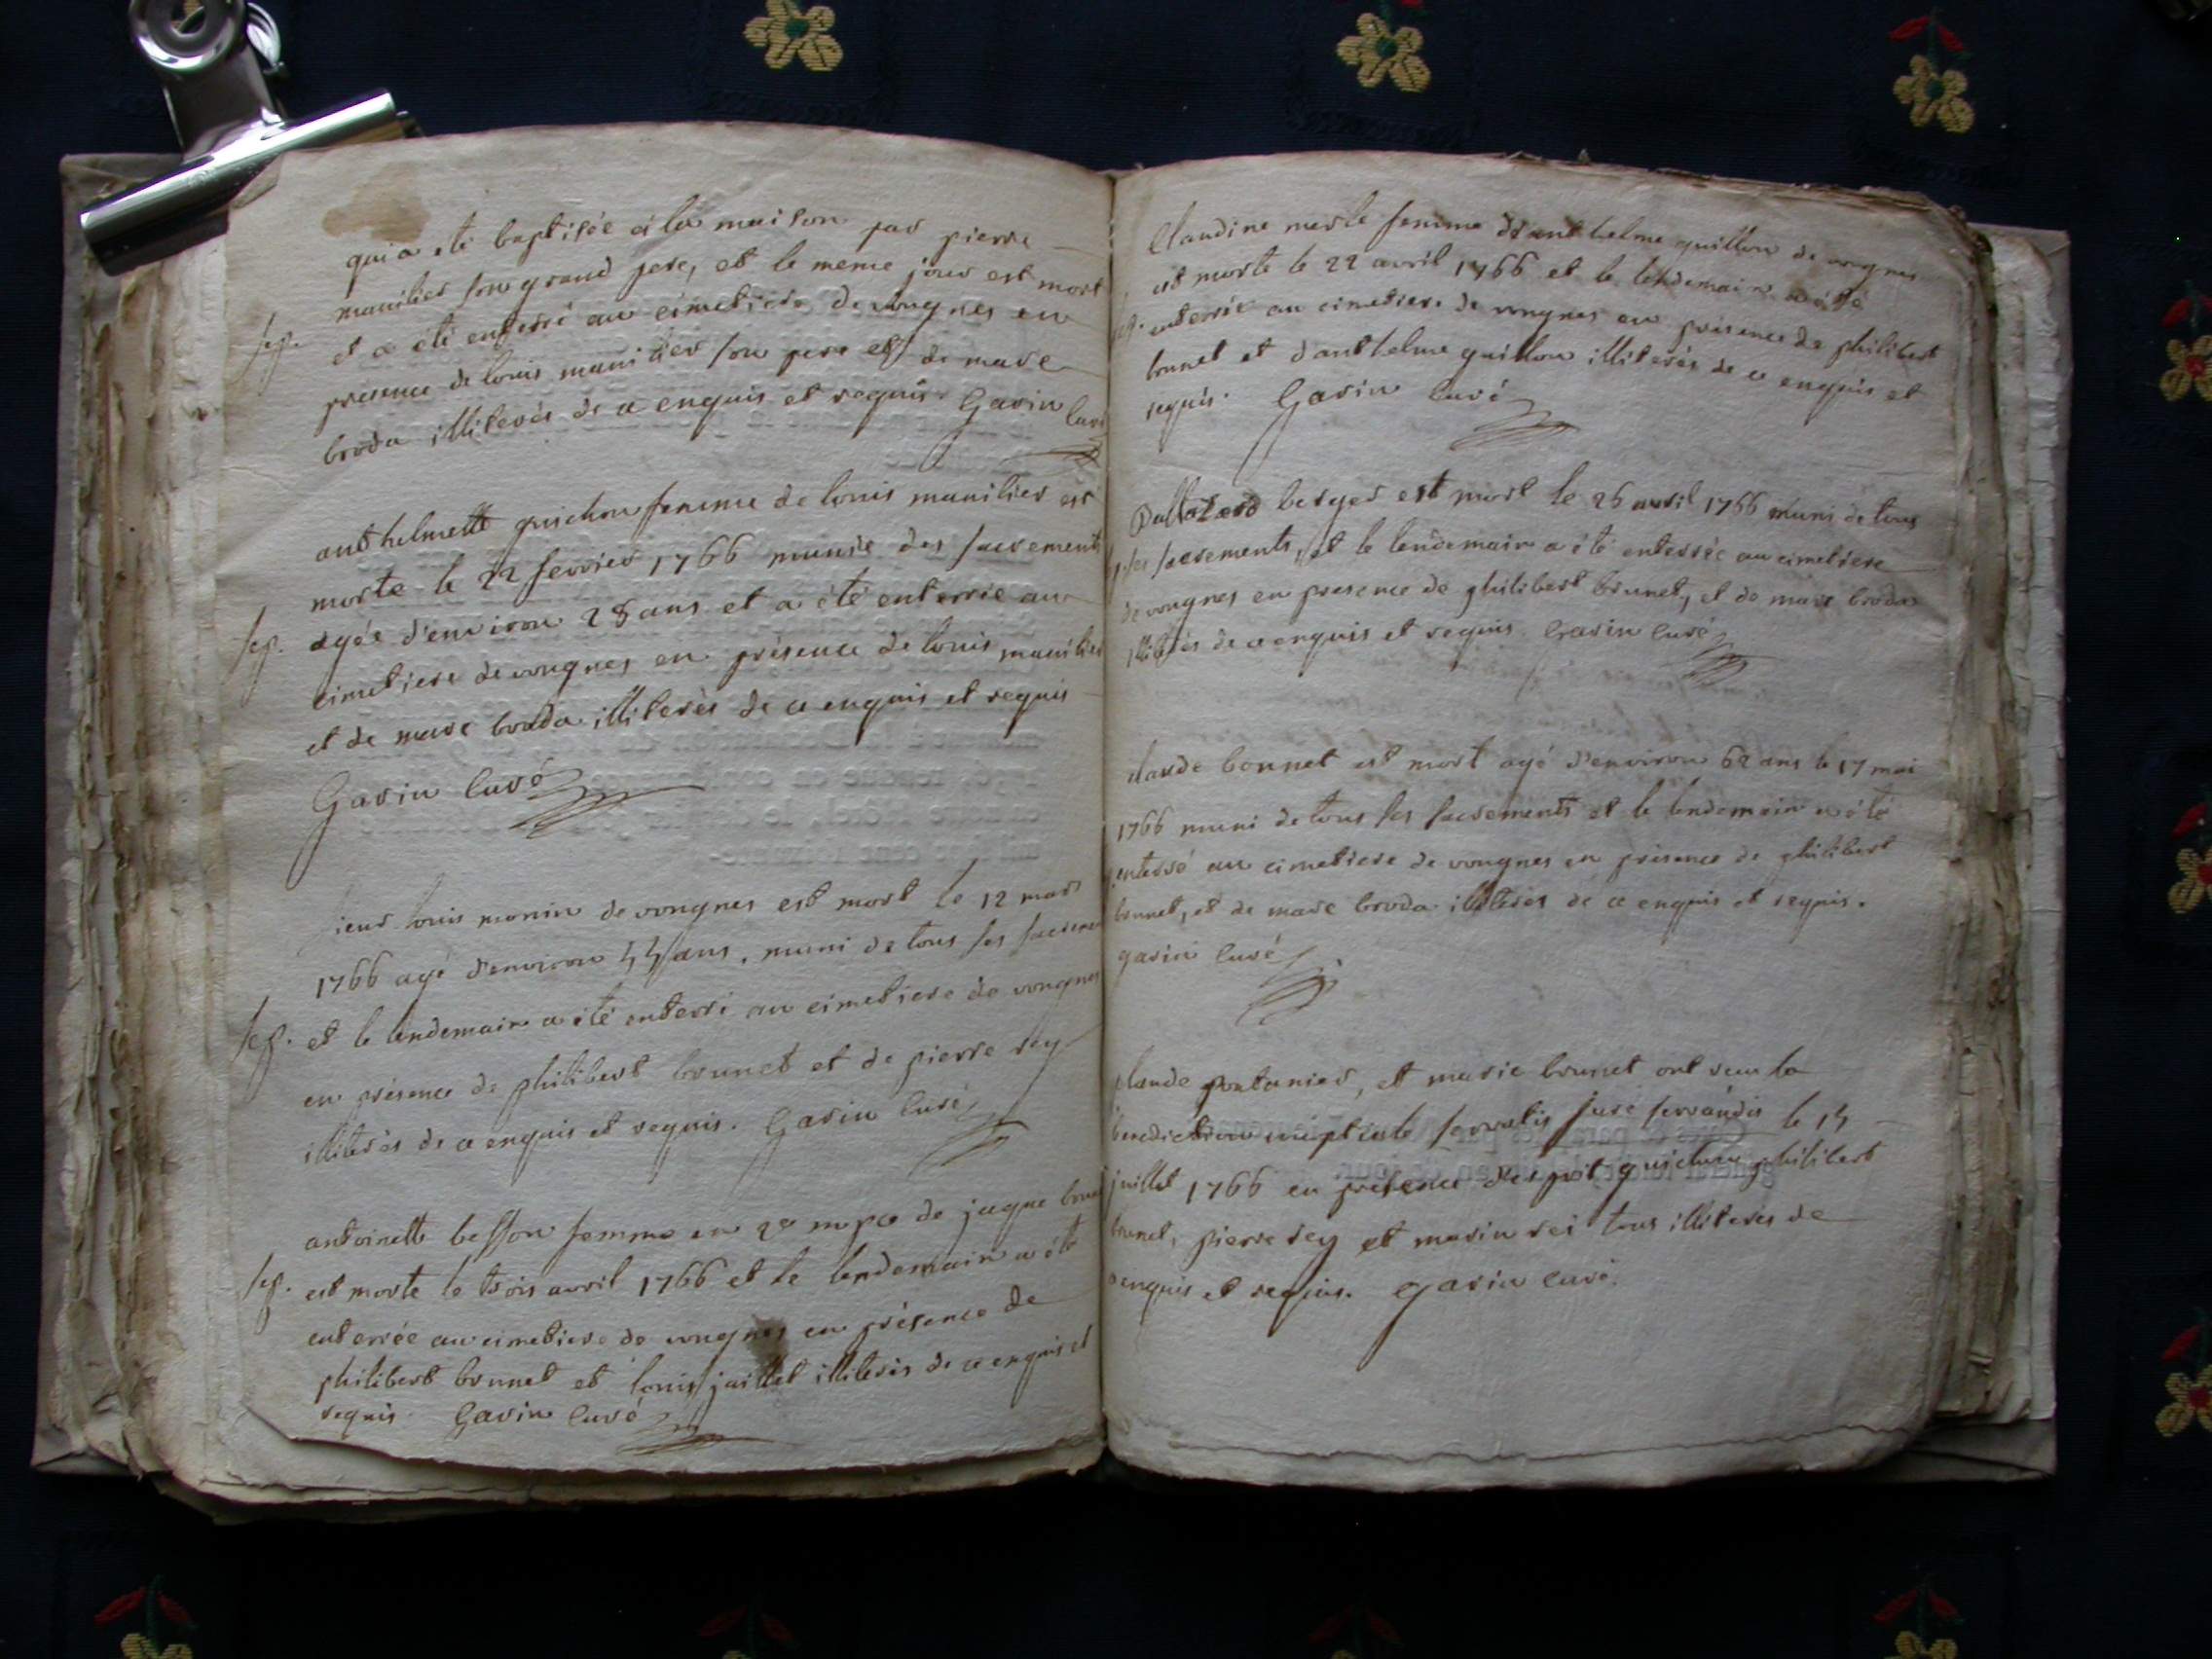 qui a eté baptisée a la maison par pierre
manilier son grand pere, et le meme jour est mort
sep. et a été enterré au cimetiere de vongnes en
presence de louis manilier son pere et de marc
broda illiterés de ce enquis et requis Gavin curé
anthelmette guichon femme de louis manilier est
morte le 22 fevrier 1766 munie des sacrements
sep. agée d'environ 28 ans et a été enterrée au
cimetiere de vongnes en présence de louis manilier
et de marc broda illiterés de ce enquis et requis
Gavin curé
sieur louis monin de vongnes est mort le 12 mars
1766 agé d'environ 44 ans, muni de tous ses sacremen
sep. et le lendemain a été enterré au cimetiere de vongnes
en présence de philibert brunet et de pierre rey
illiterés de ce enquis et requis. Gavin curé
antoinette besson femme en 2e nopce de jaque
sep. est morte le trois avril 1766 et le lendemain a été
enterrée au cimetiere de vongnes en présence de
philibert brunet et louis juillet illiterés de ce enquis et
requis Gavin curé
Claudine merle femme d'anthelme guillon de vongnes
est morte le 22 avril 1766 et le lendemain a été
sep. enterrée au cimetiere de vongnes en présence de philibert
brunet et d'anthelme guillon illiterés de ce enquis et
requis. Gavin curé
Baltazard berger est mort le 26 avril 1766 muni de tous
ses sacrements, et le lendemain a été enterrée au cimetiere
de vongnes en presence de philibert brunet, et de marc broda
illiterés de ce enquis et requis Gavin curé
claude bonnet est mort agé d'environ 62 ans le 17 mai
1766 muni de tous ses sacrements et le lendemain a été
enterré au cimetiere de vongnes en présence de philibert
brunet, et de marc broda illiterés de ce enquis et requis.
gavin curé
claude pontanier, et marie brunet ont recu la
benediction nuptiale servatis jure servandis le 14
juillet 1766 en presence guichon philibert
brunet, pierre rey et marin rei tous illiterés de
ce enquis et requis. Gavin curé.